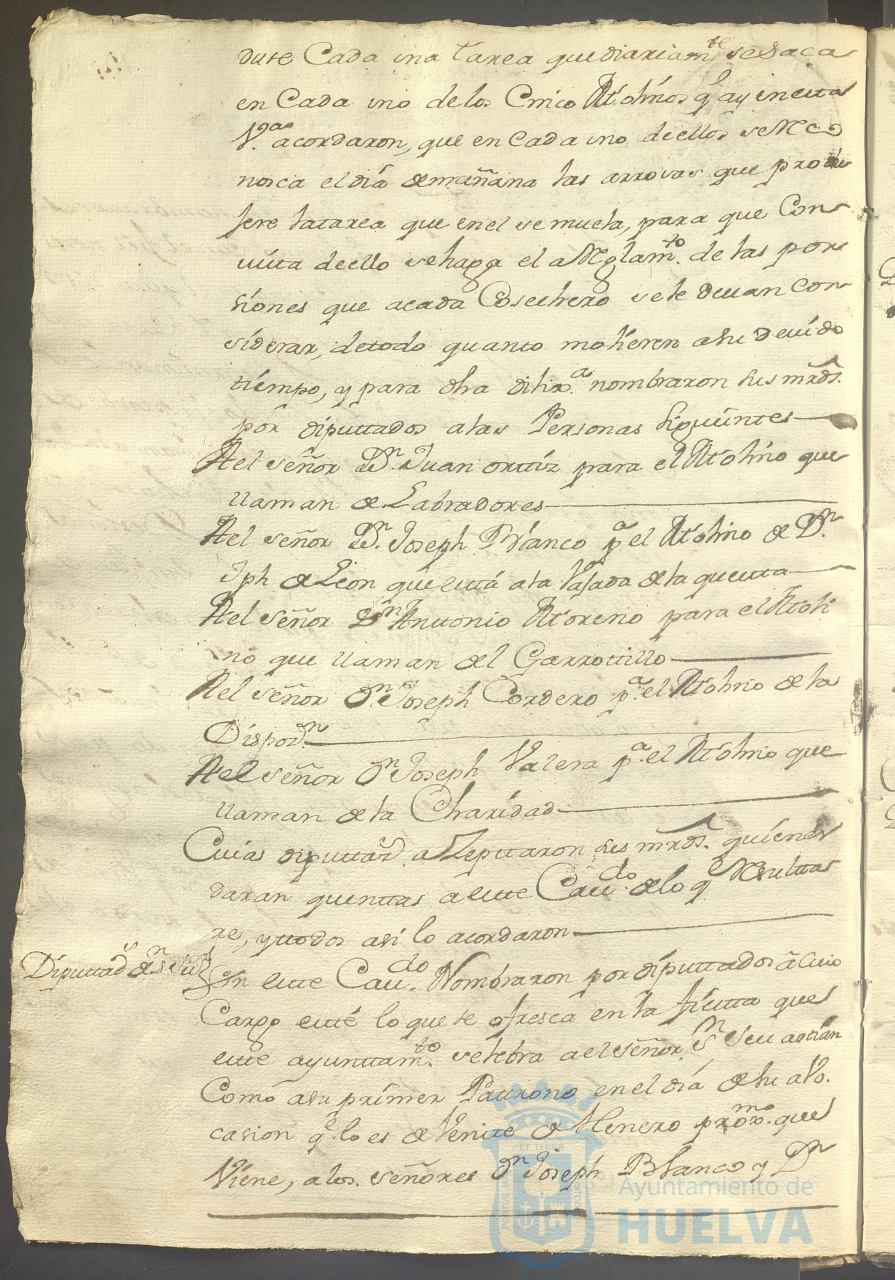 duse Cada una tarea que diariamte. se saca
en Cada uno de los Cinco Molinos q ay en esta
V.a acordaron, que en Cada uno de ellos se Reco
nosca el dia de mañana las arrovas que produ
sere la tarea que en el se muela, para que Con
vista de ello se haga el aReglamto. de las por
siones que acada Cosechero se le devan Con
siderar, de todo quanto molieren a su devido
tiempo, y para dha dilix.a nombraron sus mrds.
por diputtados a las Personas siguientes
Ael señor Dn. Juan ortiz para el Molino que
llaman de Labradores
Ael señor Dn. Joseph Blanco pa. el Molino de Dn.
Jph de Leon que está a la Vajada de la questta
Ael señor Dn Antonio Moreno para el Moli
no que llaman del Garrottillo
Ael señor Dn Joseph Cordero pa. el Molino de la
Ael señor Dn Joseph Valera pa. el Molino que
llaman de la Charidad
Cuias diputtas. aZepttaron sus mrds. quienes
daran quenttas a este Cavdo. de lo qe Resultta
re, y ttodos asi lo acordaron
Diputtads de Sn Sn
En este Cavdo. Nombraron por diputtados a Cuio
Cargo esté lo que se ofresca en la fiestta que
este ayunttamto. selebra a el señor Sn Sevastian
Como a su primer Pattrono en el dia de su abo.
casion q. lo es de Veinte de Henero proxmo. que
Viene, a los señores Dn Joseph Blanco y Dn
Ayuntamiento de
HUELVA